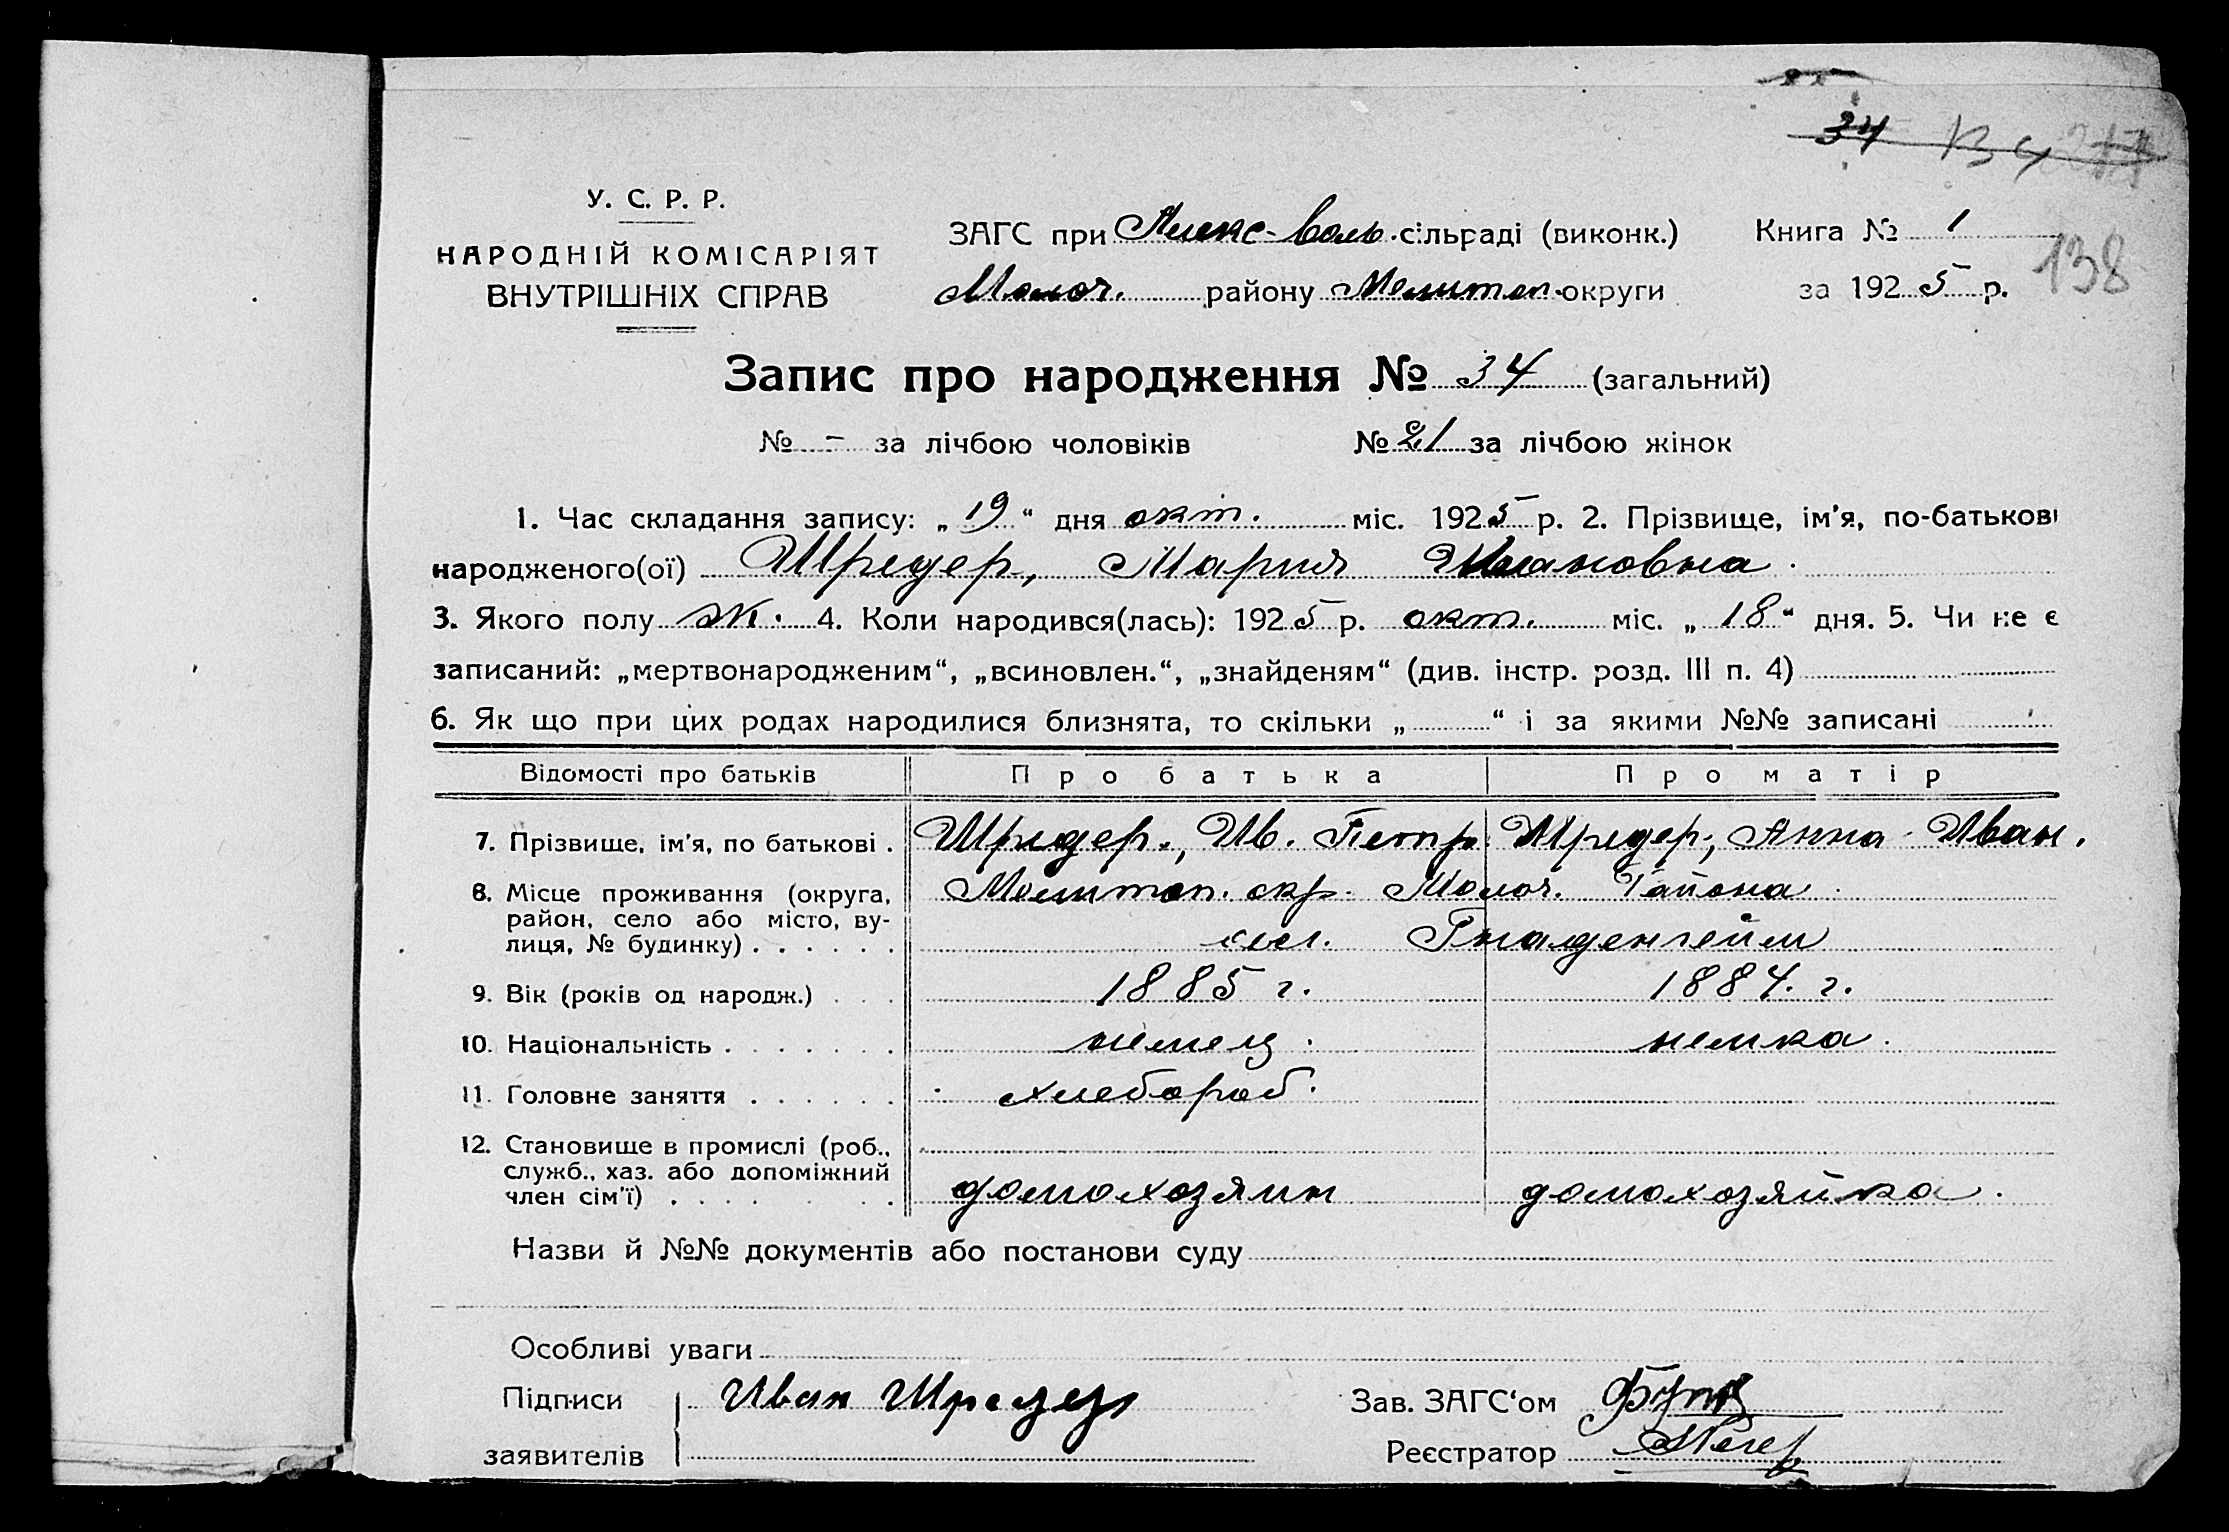 34 134 217
У. С. Р. Р.
НАРОДНІЙ КОМІСАРІЯТ
ВНУТРІШНІХ СПРАВ
ЗАГС при Алекс-Воль. сільраді (виконк.) Книга № 1
Молоч. району Мелитоп. округи за 1925 р.
138
Запис про народження № 34 (загальний)
№ - за лічбою чоловіків № 21 за лічбою жінок
1. Час складання запису: „19“ дня окт. міс. 1925 р. 2. Прізвище, ім'я, по-батькові
народженого(ої) Шредер, Мария Ивановна.
3. Якого полу ж. 4. Коли народився(лась): 1925 р. окт. міс. „18“ дня. 5. Чи не є
записаний: „мертвонародженим“, „всиновлен.“, „знайденям“ (див. інстр. розд. III п. 4)
6. Як що при цих родах народилися близнята, то скільки „ “ і за якими №№ записані
Відомості про батьків Про батька Про матір
7. Прізвище, ім'я, по батькові . Шредер., Ив. Петр. Шредер, Анна Иван.
8. Місце проживання (округа, Мелитоп. окр. Молоч. Района
район, село або місто, ву-
лиця, № будинку) . . . . . . сел. Гнаденгейм
9. Вік (років од народж.) . . . 1885 г. 1884. г.
10. Національність . . . . . . . немец. немка.
11. Головне заняття . . . . . . хлебороб.
12. Становище в промислі (роб.,
служб., хаз. або допоміжний
член сім'ї) . . . . . . . домохозяин домохозяйка.
Назви й №№ документів або постанови суду
Особливі уваги
Підписи Иван Шредер Зав. ЗАГС'ом
заявителів Реєстратор